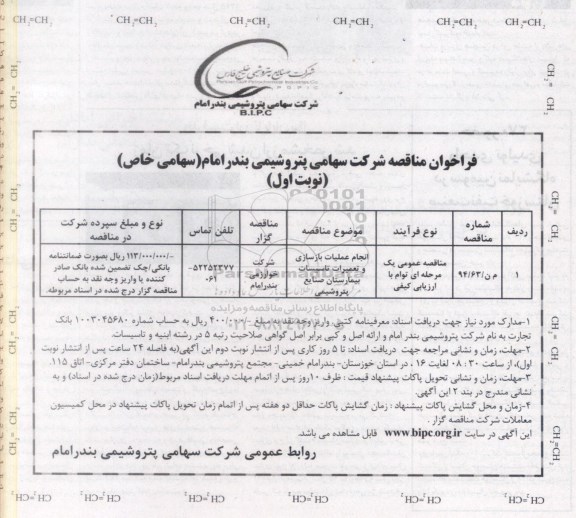 CH₂=CH₂ CH₂=CH₂ CH₂=CH₂ CH₂=CH₂ CH₂=CH₂
شرکت صنایع پتروشیمی خلیج فارس
P G P I C
شرکت سهامی پتروشیمی بندرامام
B.I.P.C
فراخوان مناقصه شرکت سهامی پتروشیمی بندرامام(سهامی خاص)
(نوبت اول)
ردیف شماره مناقصه نوع فرآیند موضوع مناقصه مناقصه گزار تلفن تماس نوع و مبلغ سپرده شرکت در مناقصه
۱ م ن/۹۴/۶۳ مناقصه عمومی یک مرحله ای توام با ارزیابی کیفی انجام عملیات بازسازی و تعمیرات تاسیسات بیمارستان صنایع پتروشیمی شرکت خوارزمی بندرامام ۵۲۲۵۲۲۷۷-۰۶۱ ۱۱۳/۰۰۰/۰۰۰/- ریال بصورت ضمانتنامه بانکی/چک تضمین شده بانک صادر کننده یا واریز وجه نقد به حساب مناقصه گزار درج شده در اسناد مربوطه.
پایگاه اطلاع رسانی مناقصه و مزایده
۱-مدارک مورد نیاز جهت دریافت اسناد: معرفینامه کتبی، واریز وجه نقد بمبلغ ۴۰۰/۰۰۰/- ریال به حساب شماره ۱۰۰۳۰۴۵۶۸۰ بانک
تجارت به نام شرکت پتروشیمی بندر امام و ارائه اصل و کپی برابر اصل گواهی صلاحیت رتبه ۵ در رشته ابنیه و تاسیسات.
۲-مهلت، زمان و نشانی مراجعه جهت دریافت اسناد: تا ۵ روز کاری پس از انتشار نوبت دوم این آگهی(به فاصله ۲۴ ساعت پس از انتشار نوبت
اول)، از ساعت ۳۰ : ۰۸ لغایت ۱۶ ، در استان خوزستان- بندرامام خمینی- مجتمع پتروشیمی بندرامام- ساختمان دفتر مرکزی- اتاق ۱۱۵.
۳-مهلت، زمان و نشانی تحویل پاکات پیشنهاد قیمت : ظرف ۱۰روز پس از اتمام مهلت دریافت اسناد مربوط(زمان درج شده در اسناد) و به
نشانی مندرج در بند ۲ این آگهی.
۴-زمان و محل گشایش پاکات پیشنهاد : زمان گشایش پاکات حداقل دو هفته پس از اتمام زمان تحویل پاکات پیشنهاد در محل کمیسیون
معاملات شرکت مناقصه گزار .
این آگهی در سایت www.bipc.org.ir قابل مشاهده می باشد.
روابط عمومی شرکت سهامی پتروشیمی بندرامام
CH₂=CH₂ CH₂=CH₂ CH₂=CH₂ CH₂=CH₂ CH₂=CH₂